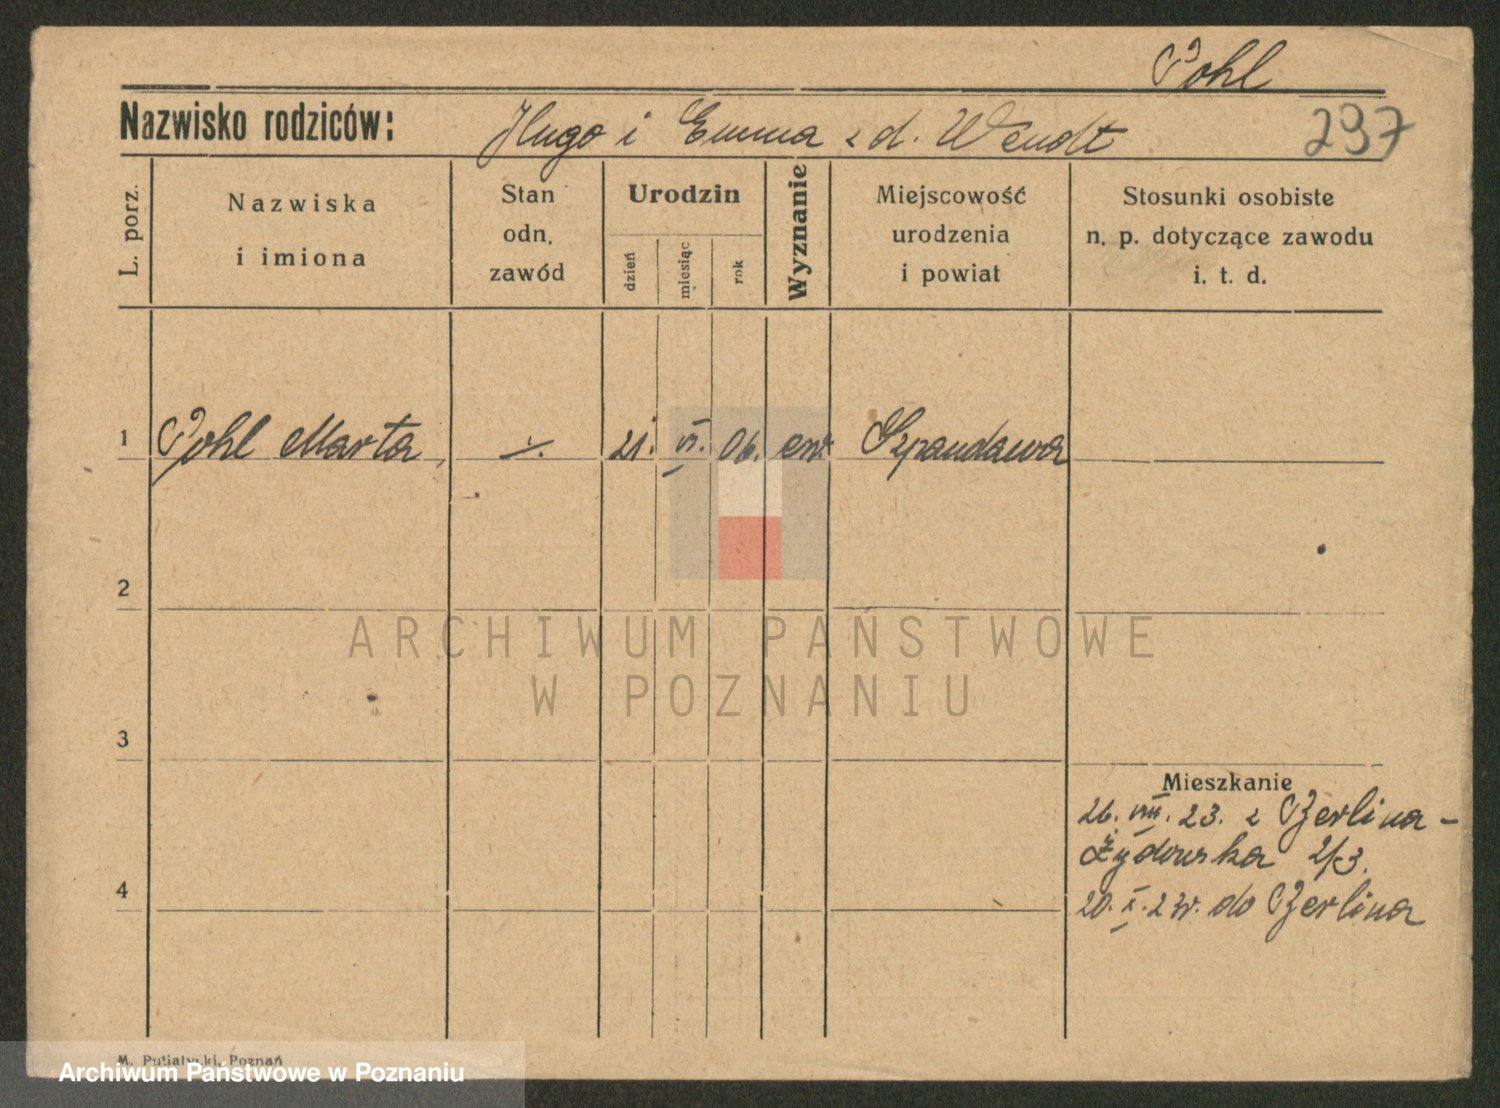 Pohl
Nazwisko rodziców: Hugo i Emma z d. Wendt 297
L. porz.
Nazwiska
i imiona
Stan
odn.
zawód
Urodzin
dzień
miesiąc
rok
Wyznanie
Miejscowość
urodzenia
i powiat
Stosunki osobiste
n. p. dotyczące zawodu
i. t. d.
1 Pohl Marta, 21. VI. 06. ew. Szpandawa
2
ARCHIWUM PAŃSTWOWE
W POZNANIU
3
Mieszkanie
26. VIII. 23. z Berlina -
Żydowska 2/3.
4
20. X. 23r. do Berlina
M. Putiatycki, Poznań
Archiwum Państwowe w Poznaniu